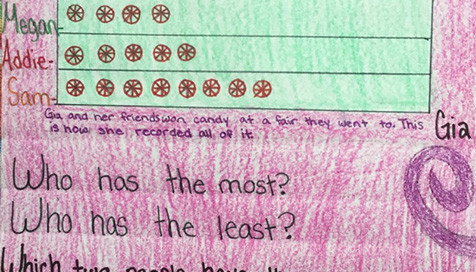 Megan-
Addie-
Sam-
Gia and her friends won candy at a fair they went to. This
is how she recorded all of it.
Gia
Who has the most?
Who has the least?
Which two people have